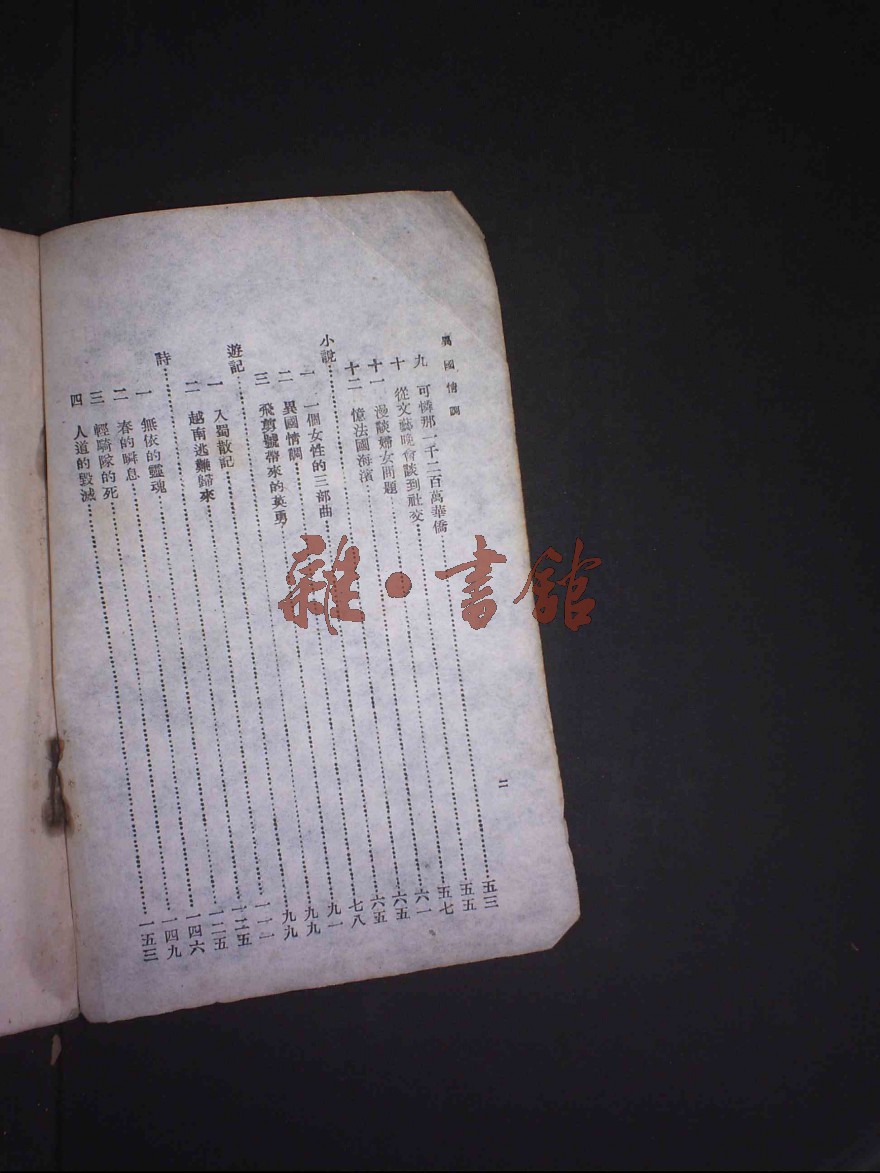 異國情調
二
九　可憐那一千二百萬華僑……五三
十　從文藝晚會談到社交……五五
十一　漫談婦女問題……五七
十二　憶法國海濱……六一
小說……六五
一　一個女性的三部曲……六五
二　異國情調……七八
三　飛剪號帶來的英勇……九一
遊記……九九
一　入蜀散記……九九
二　越南逃難歸來……一一二
詩……一二五
一　無依的靈魂……一二五
二　春的瞬息……一四六
三　輕騎隊的死……一四九
四　人道的毀滅……一五三
雜·書館